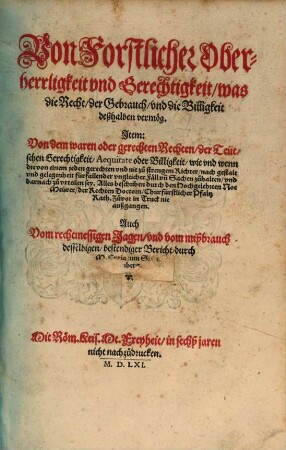 Von Forstlicher Ober-
herrligkeit vnd Gerechtigkeit/ was
die Recht/ der Gebrauch/ vnd die Billigkeit
deßhalben vermög.
Item:
Von dem waren oder gerechten Rechten/ der Teüt-
schen Gerechtigkeit/ Aequitate oder Billigkeit/ wie vnd wenn
die von einem jeden gerechten vnd nit zů strengem Richter/ nach gestalt
vnd gelegenheit fürfallender vngleicher Fäll in Sachen zůhalten/ vnd
darnach zů vrteilen sey. Alles beschriben durch den Hochgelehrten Noe
Meurer/ der Rechten Doctorn/ Churfürstlicher Pfaltz
Rath. Zůvor in Truck nie
außgangen.
Auch
Vom rechtmessigen Jagen/ vnd vom mißbrauch
desselbigen/ bestendiger Bericht/ durch
M.
Mit Röm. Keis. Mt. Freyheit/ in sechß jaren
nicht nachzůdrucken.
M. D. LXI.